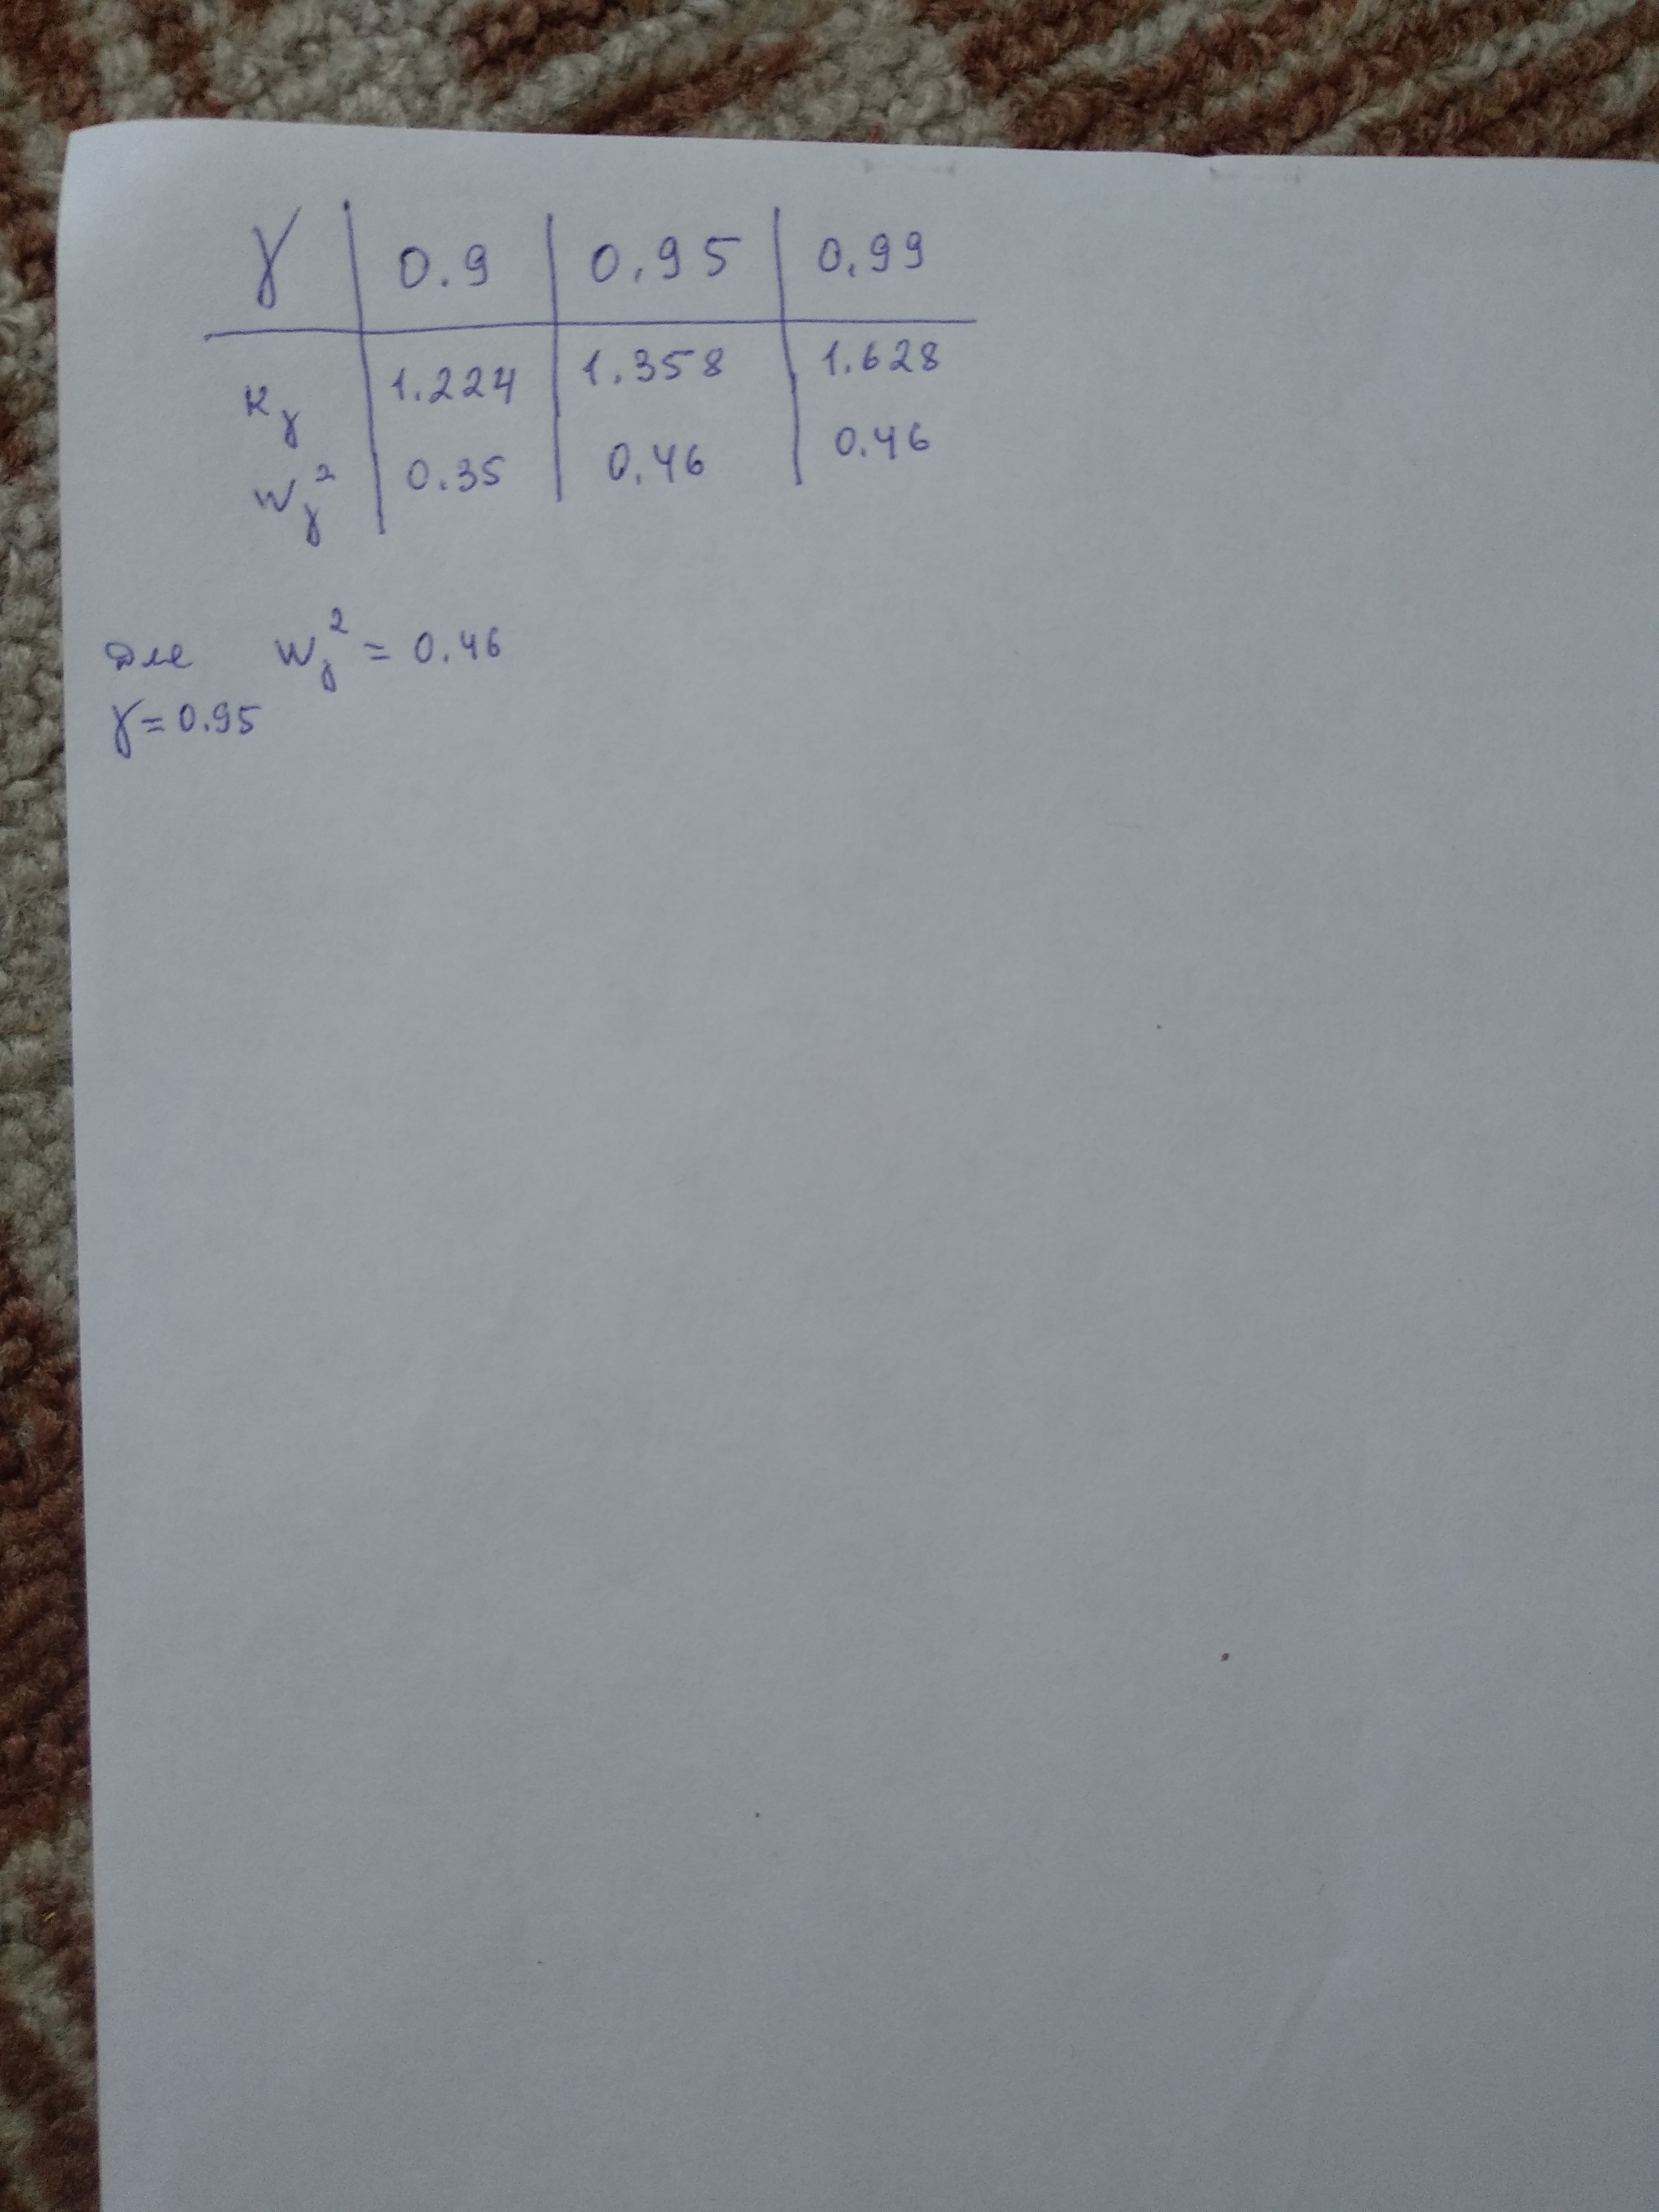 γ 0.9 0.95 0.99
Kγ 1.224 1.358 1.628
Wγ² 0.35 0.46 0.46
Для Wγ² = 0.46
γ = 0.95